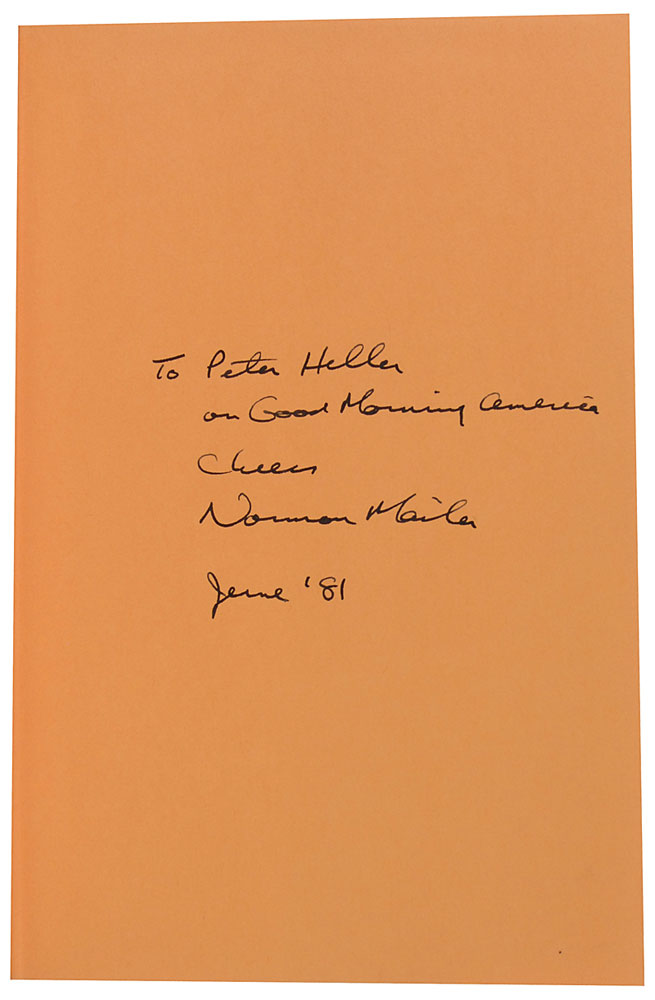 To Peter Heller
on Good Morning America
Cheers
Norman Mailer
June '81